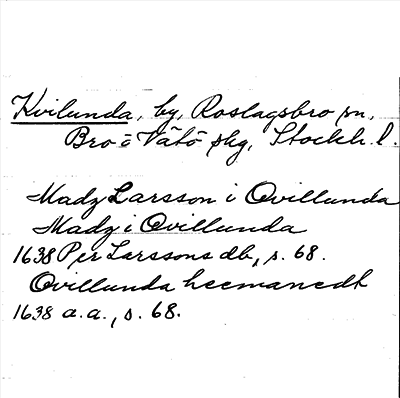 Kvilunda, by, Roslagsbro sn,
Bro o Vätö skg, Stockh. l.
Madz Larsson i Qvillunda
Madz i Qvillunda
1638 Per Larssons db, s. 68.
Qvillunda heemanedh
1638 a. a., s. 68.